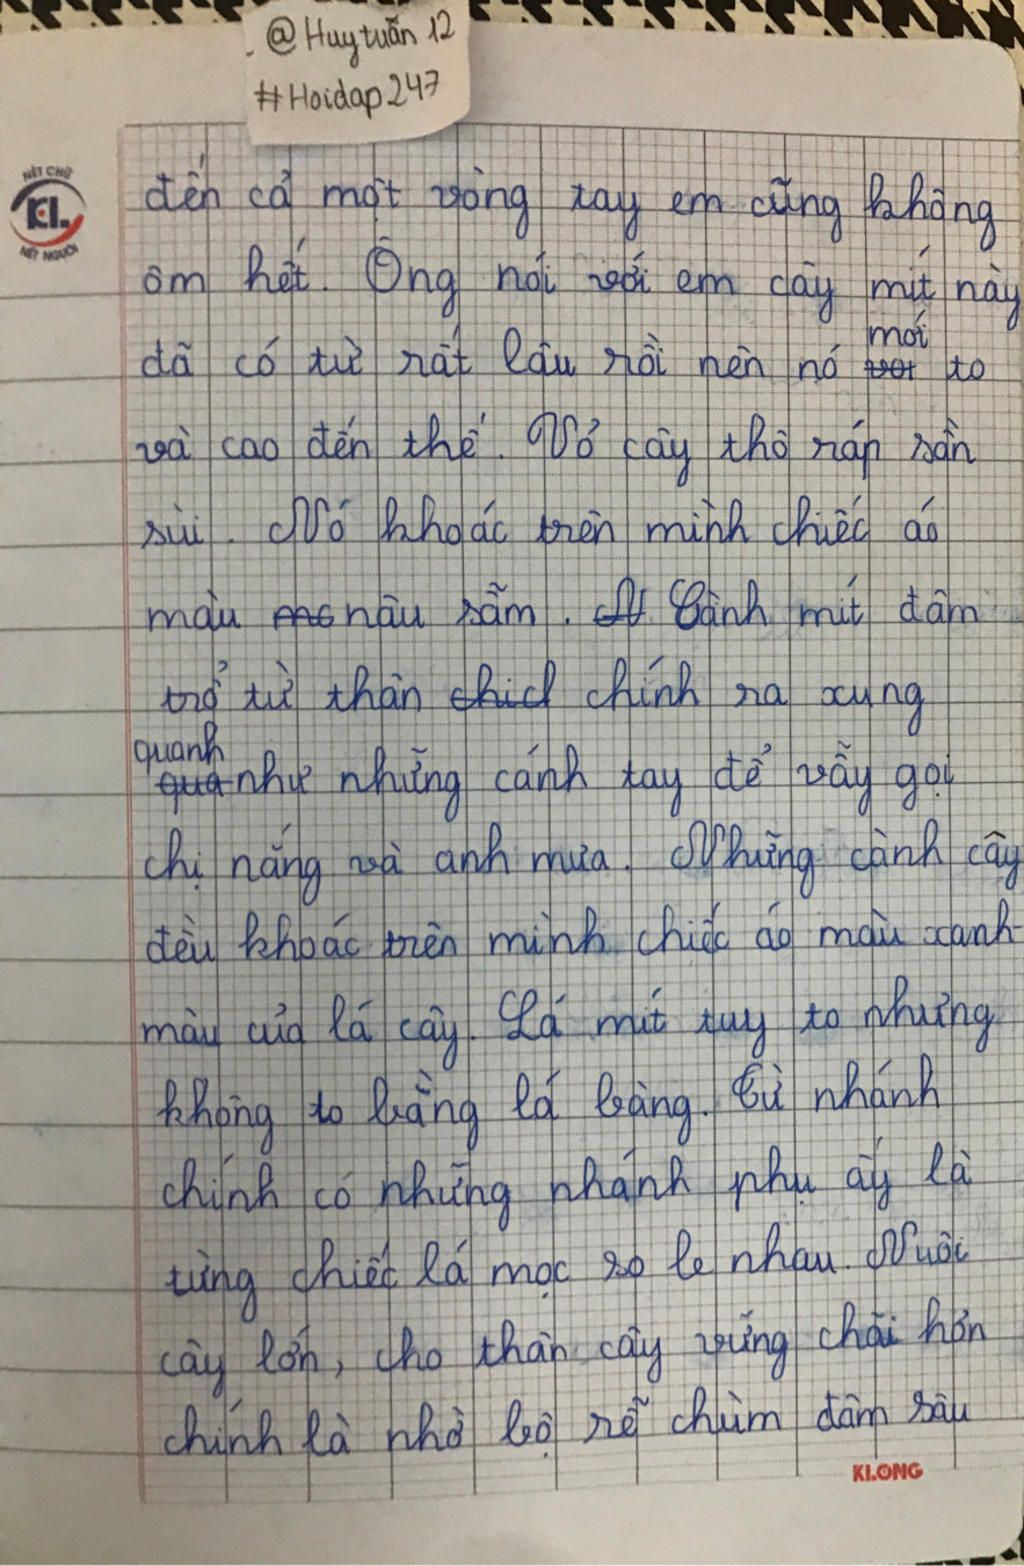 @Huytuấn 12
#Hoidap247
NÉT CHỮ
KL
NẾT NGƯỜI
đến cả một vòng tay em cũng không
ôm hết. Ông nói với em cây mít này
mới
đã có từ rất lâu rồi nên nó to
và cao đến thế. Vỏ cây thô ráp sần
sùi. Nó khoác trên mình chiếc áo
màu nâu sẫm. Cành mít đâm
trổ từ thân chính ra xung
quanh
như những cánh tay để vẫy gọi
chị nắng và anh mưa. Những cành cây
đều khoác trên mình chiếc áo màu xanh
màu của lá cây. Lá mít tuy to nhưng
không to bằng lá bàng. Từ nhánh
chính có những nhánh phụ ấy là
từng chiếc lá mọc so le nhau. Nuôi
cây lớn, cho thân cây vững chãi hơn
chính là nhờ bộ rễ chùm đâm sâu
KLONG